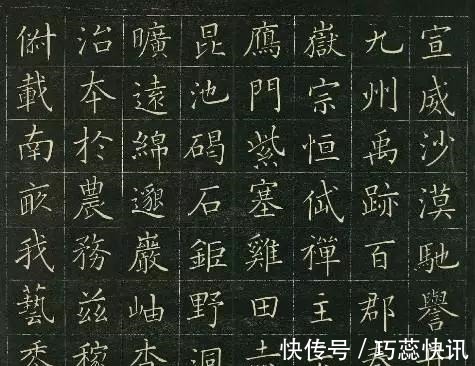 宣威沙漠馳譽
九州禹跡百郡
嶽宗恒岱禪主
鴈門紫塞雞田
昆池碣石鉅野洞
曠遠綿邈巖岫杳
治本於農務茲稼
俶載南畝我藝黍
快传号／巧蕊快讯